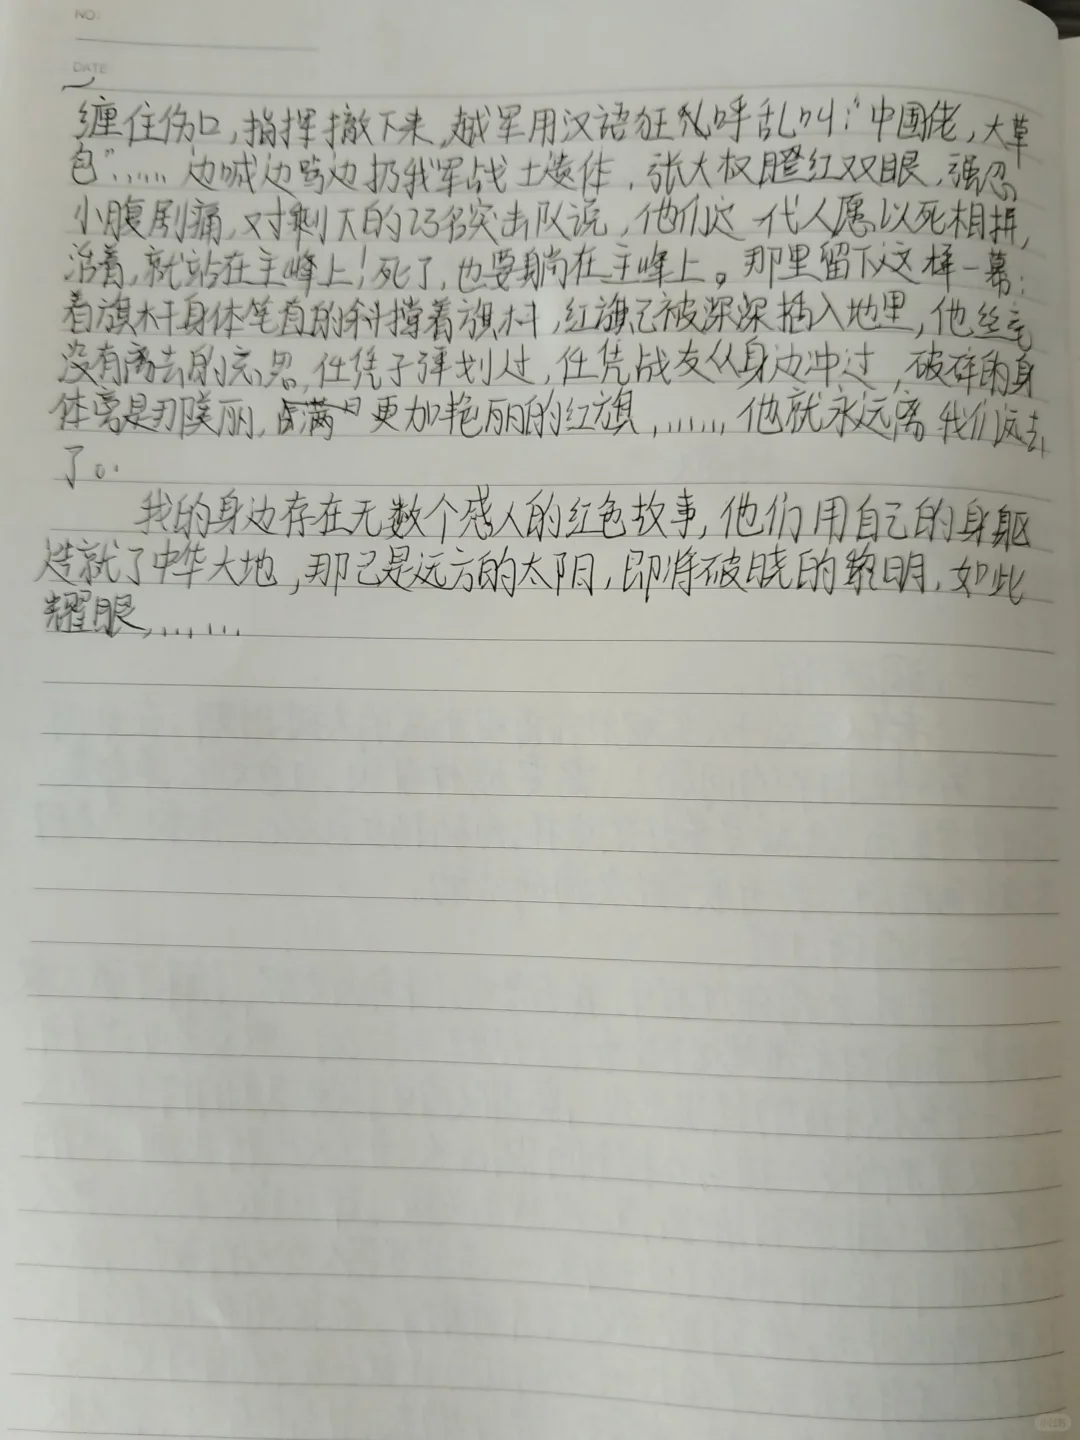 NO:
DATE
缠住伤口，指挥撤下来，越军用汉语狂乱呼乱叫：“中国佬，大草
包”……边喊边骂边扔我军战士遗体，张大权瞪红双眼，强忍
小腹剧痛，对剩下的23名突击队说，他们这一代人愿以死相拼，
活着，就站在主峰上！死了，也要躺在主峰上。那里留下这样一幕：
着旗杆身体笔直的斜撑着旗杆，红旗已被深深插入地里，他丝毫
没有离去的意思，任凭子弹划过，任凭战友从身边冲过，破碎的身
体旁是那璞丽，满更加艳丽的红旗，……他就永远离我们远去
了。
我的身边存在无数个感人的红色故事，他们用自己的身躯
造就了中华大地，那已是远方的太阳，即将破晓的黎明，如此
耀眼，……